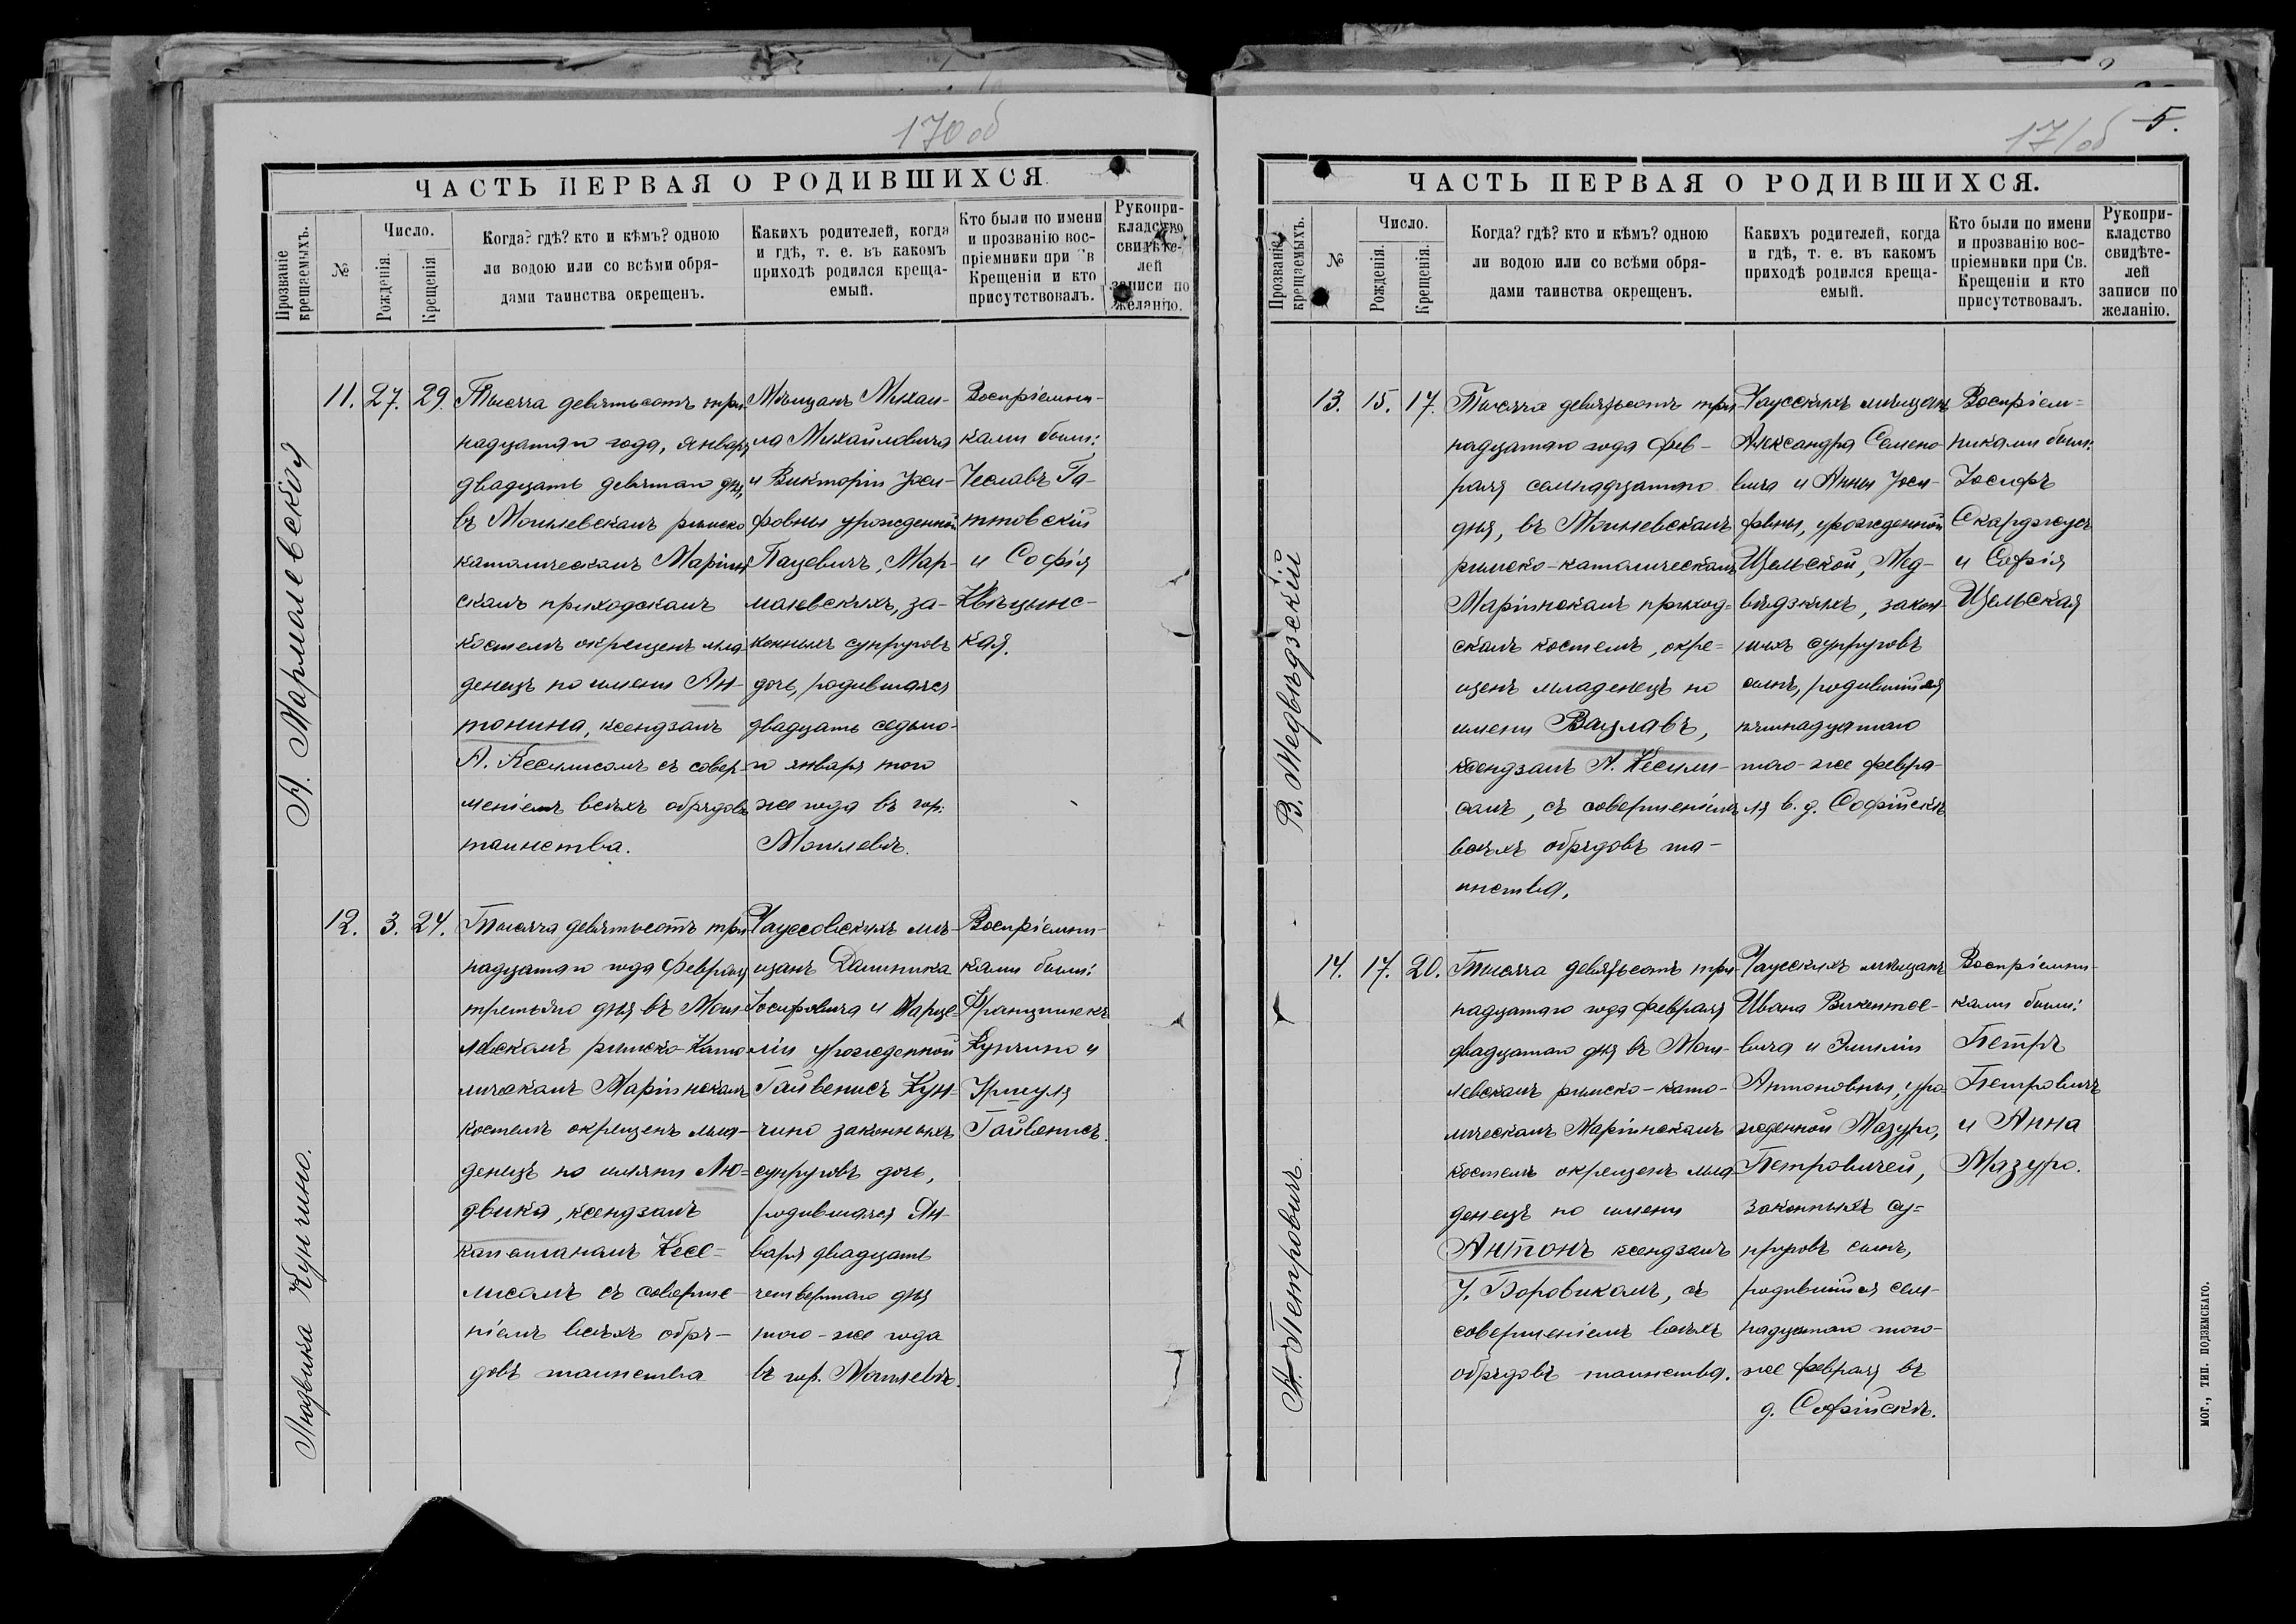 170 об
ЧАСТЬ ПЕРВАЯ О РОДИВШИХСЯ.
Прозваніе крещаемыхъ.
№
Число.
Рожденія.
Крещенія
Когда? гдѣ? кто и кѣмъ? одною
ли водою или со всѣми обря-
дами таинства окрещенъ.
Какихъ родителей, когда
и гдѣ, т. е. въ какомъ
приходѣ родился креща-
емый.
Кто были по имени
и прозванію вос-
пріемники при в
Крещеніи и кто
присутствовалъ.
Рукопри-
кладство
свидѣте-
лей
записи по
желанію.
А. Мармалевскія
11. 27. 29.
Тысяча девятьсотъ три-
надцатаго года, января
двадцать девятаго дня,
въ Могилевскомъ римско
католическомъ Маріин
скомъ приходскомъ
костелѣ окрещенъ мла-
денецъ по имени Ан-
тонина, ксендзомъ
А. Кесилисомъ съ совер-
шеніемъ всѣхъ обрядовъ
таинства.
Мѣщанъ Михаи-
ла Михайловича
и Викторіи Іоси-
фовны урожденной
Пацевичъ, Мар-
малевскихъ, за-
конныхъ супруговъ
дочь, родившаяся
двадцать седьмо-
го января того
же года въ гор.
Могилевѣ.
Воспріемни-
ками были:
Чеславъ Га-
ттовскій
и Софія
Квѣцинс-
кая.
Людвика Кунчино.
12. 3. 24.
Тысяча девятьсотъ три
надцатаго года февраля
третьяго дня въ Моги-
левскомъ римско-като
лическомъ Маріинскомъ
костелѣ окрещенъ мла-
денецъ по имяни Лю-
двика, ксендзомъ
капеланомъ Кесе-
лисомъ съ соверше-
ніемъ всѣхъ обря-
довъ таинства
Чаусовскихъ мѣ-
щанъ Доминика
Іосифовича и Марце-
ліи урожденной
Гайвенисъ Кун-
чино законныхъ
супруговъ дочь,
родившаяся Ян-
варя двадцать
четвертаго дня
того-же года
въ гор. Могилевѣ.
Воспріемни-
ками были:
Францишекъ
Кунчино и
Уршуля
Гайвенисъ.
171об 5.
ЧАСТЬ ПЕРВАЯ О РОДИВШИХСЯ.
Прозваніе крещаемыхъ.
№
Число.
Рожденія.
Крещенія.
Когда? гдѣ? кто и кѣмъ? одною
ли водою или со всѣми обря-
дами таинства окрещенъ.
Какихъ родителей, когда
и гдѣ, т. е. въ какомъ
приходѣ родился креща-
емый.
Кто были по имени
и прозванію вос-
пріемники при Св.
Крещеніи и кто
присутствовалъ.
Рукопри-
кладство
свидѣте-
лей
записи по
желанію.
В. Медвѣдзскій
13. 15. 17.
Тысяча девятьсотъ три-
надцатаго года фев-
раля семнадцатаго
дня, въ Могилевскомъ
римско-католическомъ
Маріинскомъ приход-
скомъ костелѣ, окре-
щенъ младенецъ по
имени Вацлавъ,
ксендзомъ А. Кесили-
сомъ, съ совершеніемъ
всѣхъ обрядовъ та-
инства,
Чаусскихъ мѣщанъ
Александра Семено-
вича и Анны Іоси-
фовны, урожденной
Цельской, Мед-
вѣдзкихъ, закон-
ныхъ супруговъ
сынъ, родившійся
пятнадцатаго
того-же февра-
ля в. д. Софійскѣ
Воспріем-
никами были:
Іосифъ
Скарджусъ
и Софія
Цельская
А. Петровичъ.
14. 17. 20.
Тысяча девятьсотъ три-
надцатаго года февраля
двадцатаго дня въ Моги-
левскомъ римско-като-
лическомъ Маріинскомъ
костелѣ окрещенъ мла
денецъ по имени
Антонъ ксендзомъ
У. Боровикомъ, съ
совершеніемъ всѣхъ
обрядовъ таинства.
Чаусскихъ мѣщанъ
Ивана Викентье-
вича и Эмиліи
Антоновны, уро-
жденной Мазуро,
Петровичей,
законныхъ су-
пруговъ сынъ,
родившійся сем-
надцатаго того-
же февраля въ
д. Софійскѣ.
Воспріемни-
ками были:
Петръ
Петровичъ
и Анна
Мазуро.
МОГ., ТИП. ПОДЗЕМСКАГО.